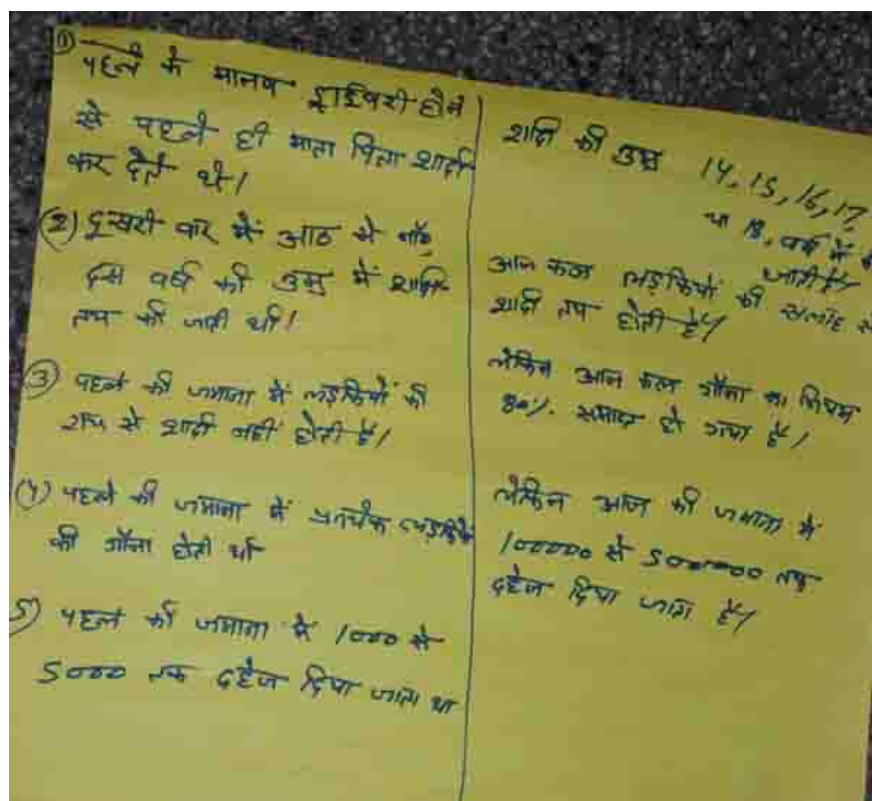 ① पहले के मानव डाईवरी होने
से पहले ही माता पिता शादी
कर देते थे।
(2) दुसरी कर में आठ से नौ,
दस वर्ष की उम्र में शादि
तय की जाती थी।
③ पहले की जमाना में लड़कियों की
राय से शादी नहीं होती हैं।
(4) पहले की जमाना में प्रतयेक लड़कियों
की गौना होती थी
5) पहले की जमाना में 1000 से
5000 तक दहेज दिया जाता था
शादि की उम्र 14, 15, 16, 17,
या 18, वर्ष में की
जाती हैं।
आज कल लड़कियों की सलाह से
शादी तय होती हैं।
लेकिन आज कल गौना का नियम
80%. समाप्त हो गया हैं।
लेकिन आज की जमाना में
100000 से 500000 तक
दहेज दिया जाता हैं।